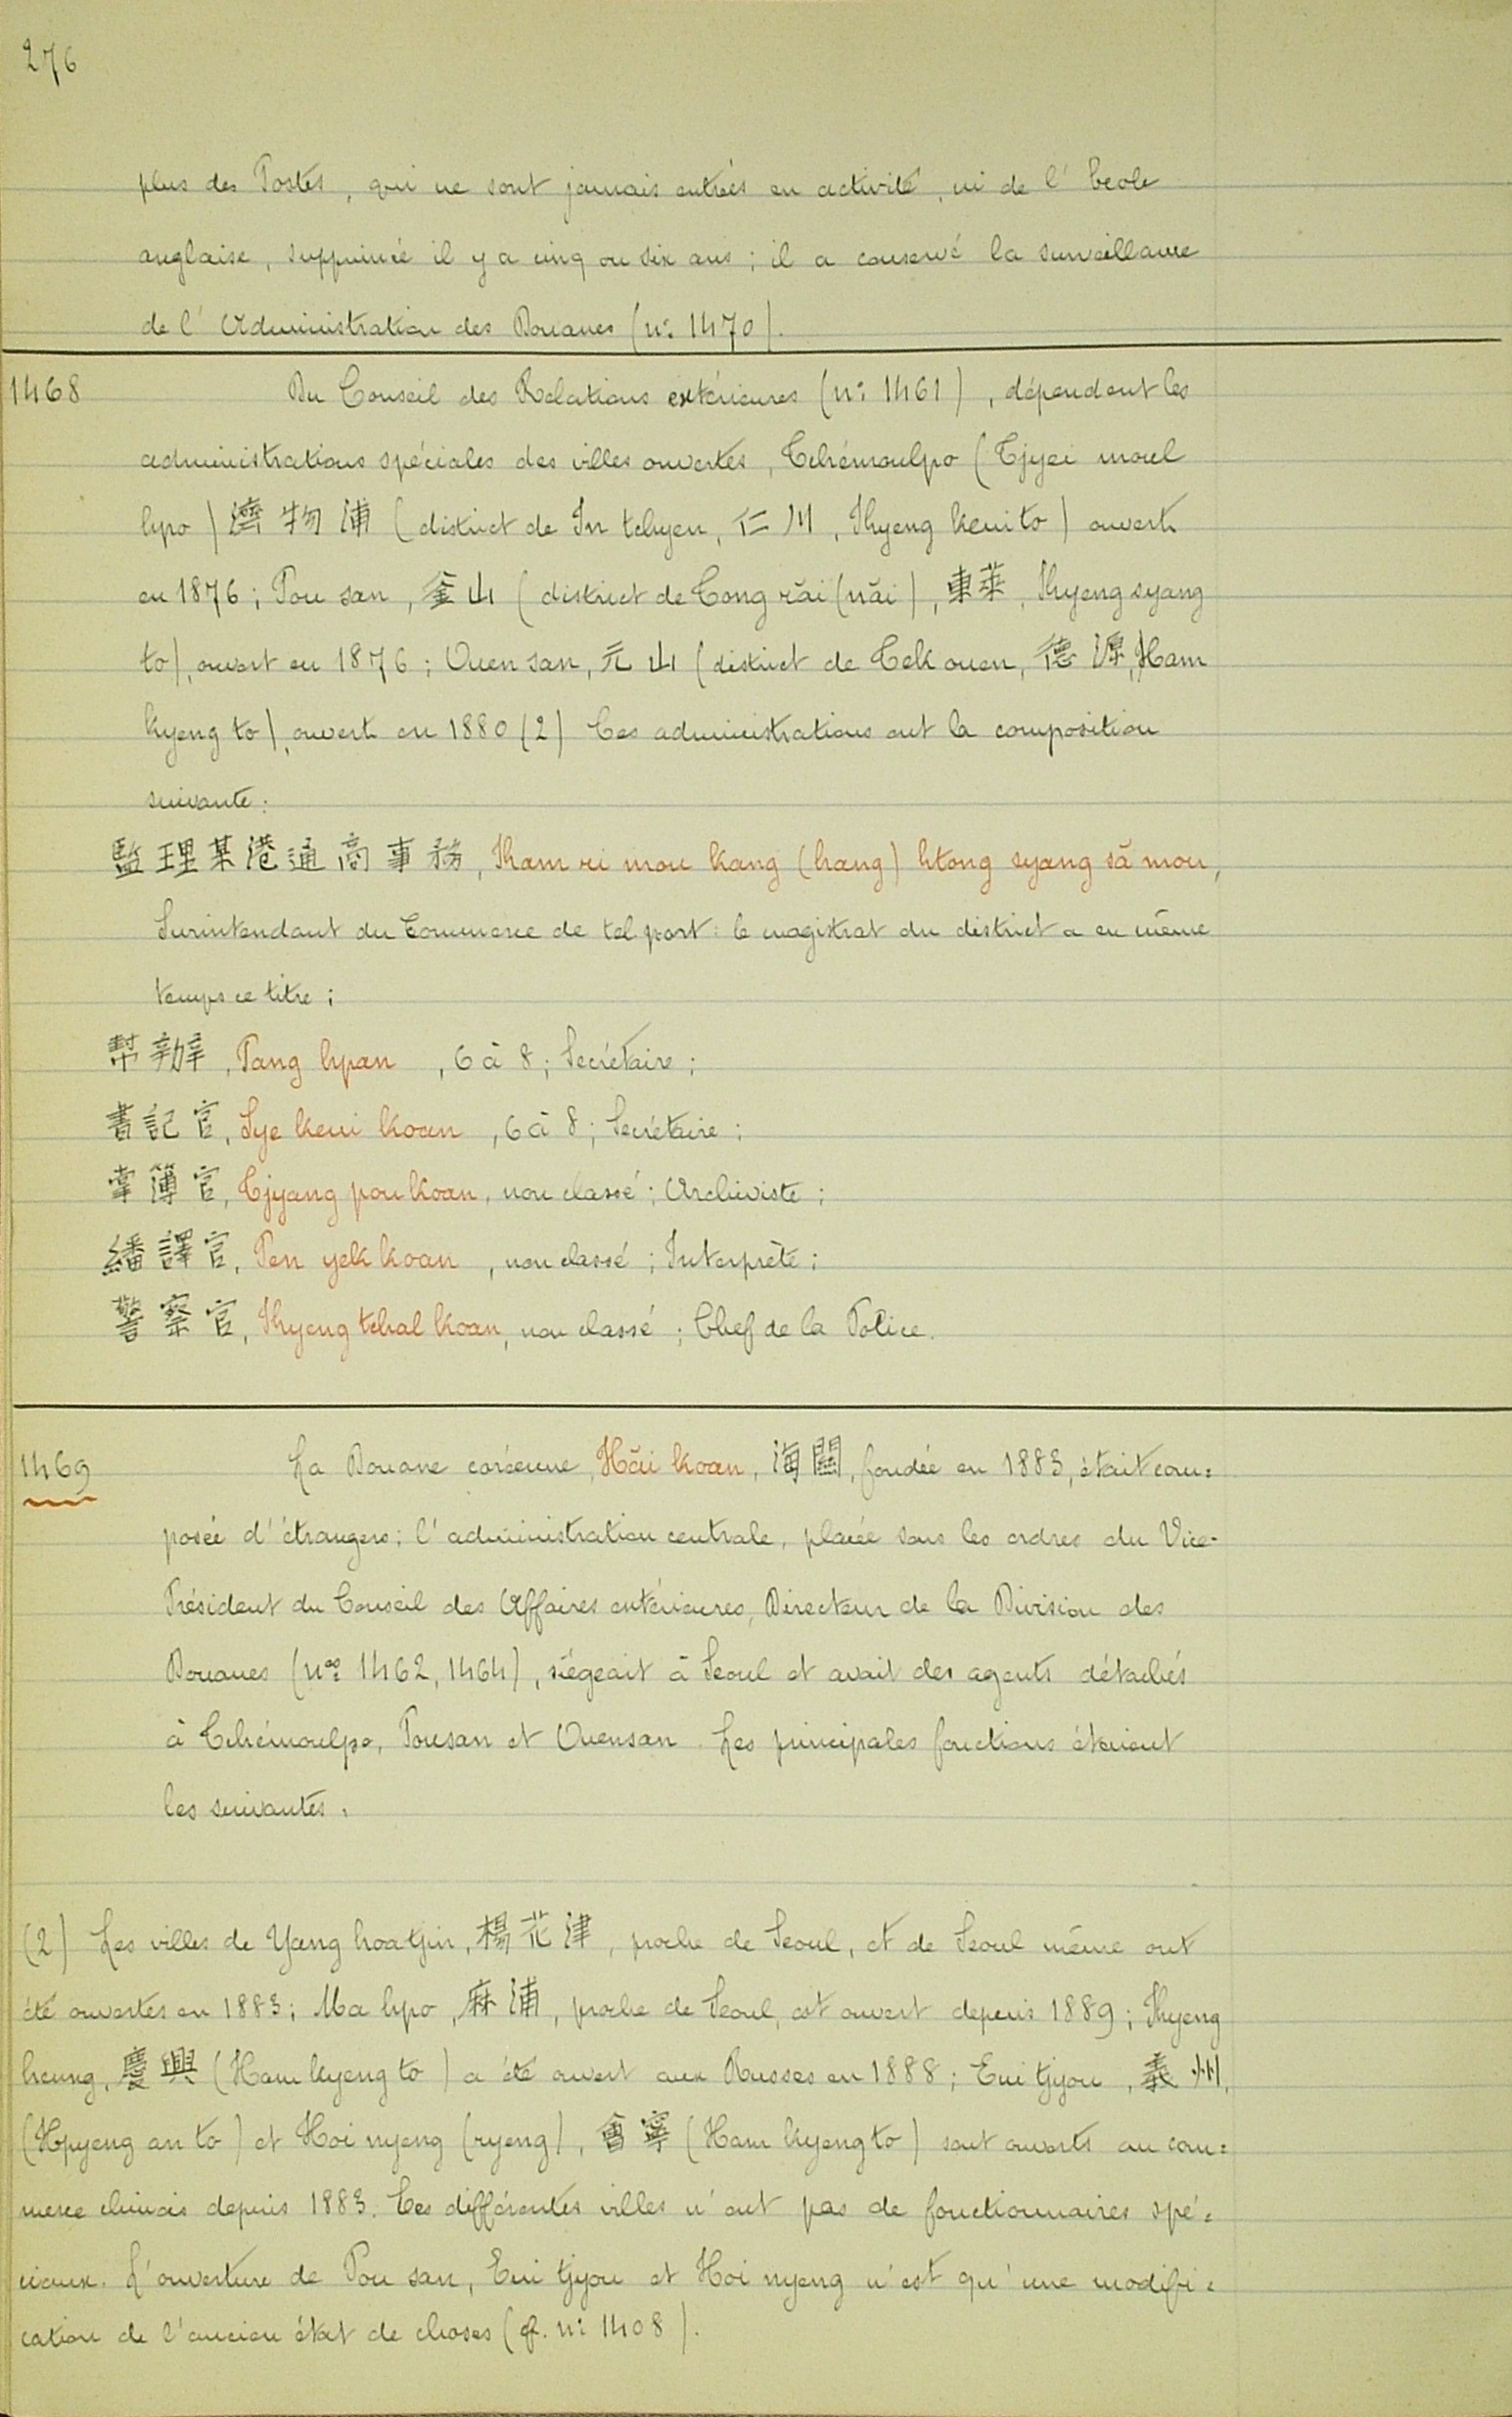 276
plus des Postes, qui ne sont jamais entrés en activité, ni de l'Ecole
anglaise, supprimée il y a cinq ou six ans ; il a conservé la surveillance
de l'Administration des Douanes (n° 1470).
1468 Du Conseil des Relations extérieures (n° 1461), dépendent les
administrations spéciales des villes ouvertes, Tchémoulpo (Tjyei moul
hpo) 濟物浦 (district de In tchyen, 仁川, Kyeng keui to) ouvert
en 1876 ; Pou san, 釜山 (district de Tong răi (năi), 東萊, Kyeng syang
to), ouvert en 1876 ; Ouen san, 元山 (district de Tek ouen, 德源, Ham
kyeng to), ouvert en 1880 (2) Ces administrations ont la composition
suivante :
監理某港通商事務, Kam ri mou kang (hang) htong syang să mou,
Surintendant du Commerce de tel port : le magistrat du district a en même
temps ce titre ;
幇辦, Pang hpan, 6 à 8 ; Secrétaire ;
書記官, Sye keui koan, 6 à 8 ; Secrétaire ;
掌簿官, Tjyang pou koan, non classé ; Archiviste ;
繙譯官, Pen yek koan, non classé ; Interprète ;
警察官, Kyeng tchal koan, non classé ; Chef de la Police.
1469 La Douane coréenne, Hăi koan, 海關, fondée en 1883, était com=
posée d'étrangers ; l'administration centrale, placée sous les ordres du Vice-
Président du Conseil des Affaires extérieures, Directeur de la Division des
Douanes (nos 1462, 1464), siégeait à Seoul et avait des agents détachés
à Tchémoulpo, Pousan et Ouensan. Les principales fonctions étaient
les suivantes :
(2) Les villes de Yang hoa tjin, 楊花津, proche de Seoul, et de Seoul même ont
été ouvertes en 1883 ; Ma hpo, 麻浦, proche de Seoul, est ouvert depuis 1889 ; Kyeng
heung, 慶興 (Ham kyeng to) a été ouvert aux Russes en 1888 ; Eui tjyou, 義州,
(Hpyeng an to) et Hoi nyeng (ryeng), 會寧 (Ham kyeng to) sont ouverts au com=
merce chinois depuis 1883. Ces différentes villes n'ont pas de fonctionnaires spé=
ciaux. L'ouverture de Pou san, Eui tjyou et Hoi nyeng n'est qu'une modifi=
cation de l'ancien état de choses (cf. n° 1408).